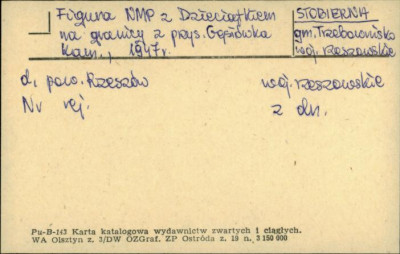 Figura NMP z Dzieciątkiem
na granicy z przys. Gęsiówka
kam., 1947r.
STOBIERNA
gm. Trzebownisko
woj. rzeszowskie
d. pow. Rzeszów woj. rzeszowskie
Nr rej. z dn.
Pu-B-143 Karta katalogowa wydawnictw zwartych i ciągłych.
WA Olsztyn z. 3/DW OZGraf. ZP Ostróda z. 19 n. 3 150 000